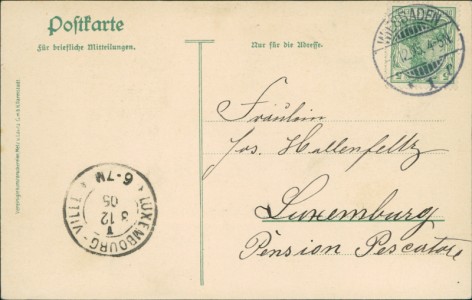 Postkarte
Für briefliche Mitteilungen.
Nur für die Adresse.
WIESBADEN
12.05. 4-5N.
Fräulein
Jos. Hallenfeltz
Luxemburg
Pension Pescatore
LUXEMBOURG-VILLE
6-7M
3 12
05